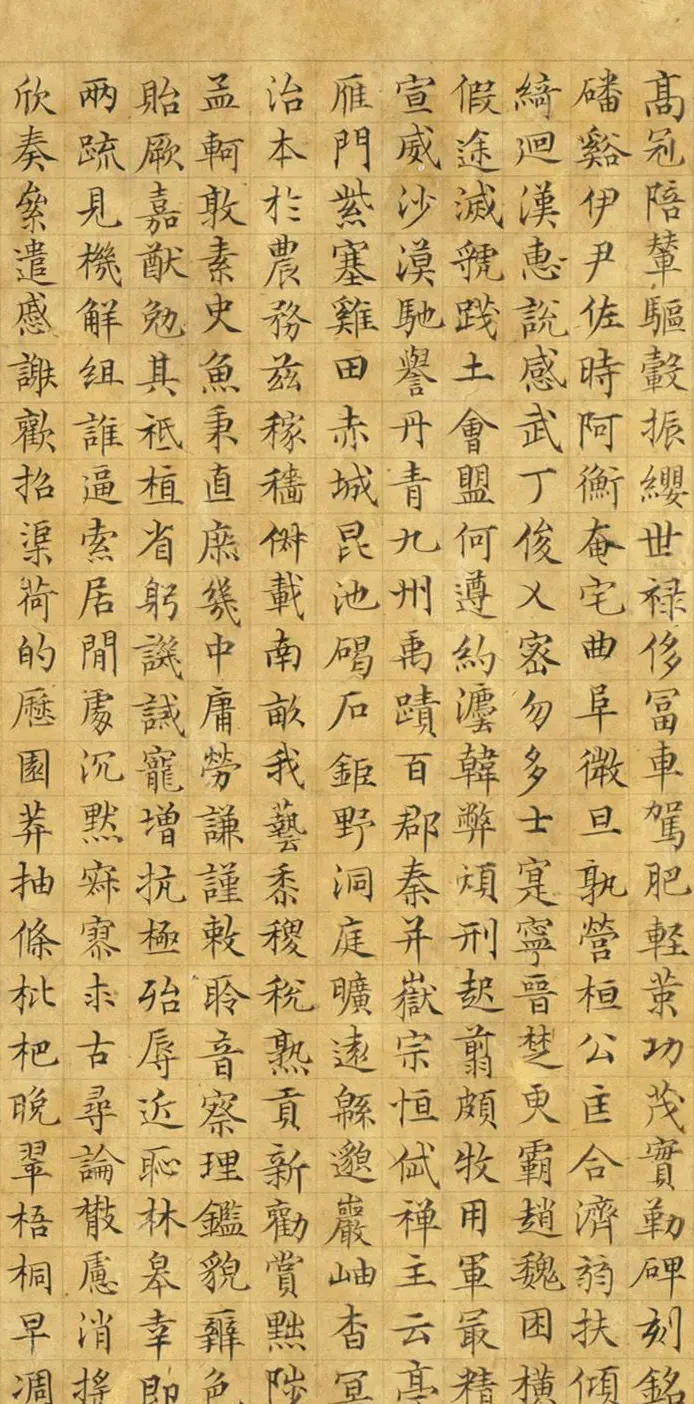 高冠陪輦驅轂振纓世禄侈冨車駕肥輕策功茂實勒碑刻銘
磻谿伊尹佐時阿衡奄宅曲阜微旦孰營桓公匡合濟弱扶傾
綺迴漢惠說感武丁俊乂密勿多士寔寧晉楚更霸趙魏困橫
假途滅虢踐土會盟何遵約灋韓弊煩刑起翦頗牧用軍最精
宣威沙漠馳譽丹青九州禹蹟百郡秦并嶽宗恒岱禪主云亭
雁門紫塞雞田赤城昆池碣石鉅野洞庭曠遠緜邈巖岫杳冥
治本於農務茲稼穡俶載南畝我藝黍稷稅熟貢新勸賞黜陟
孟軻敦素史魚秉直庶幾中庸勞謙謹敕聆音察理鑑貌辨色
貽厥嘉猷勉其祗植省躬譏誡寵增抗極殆辱近恥林皋幸即
兩疏見機解組誰逼索居閒處沉默寂寥求古尋論散慮消搖
欣奏累遣慼謝歡招渠荷的歷園莽抽條枇杷晚翠梧桐早凋